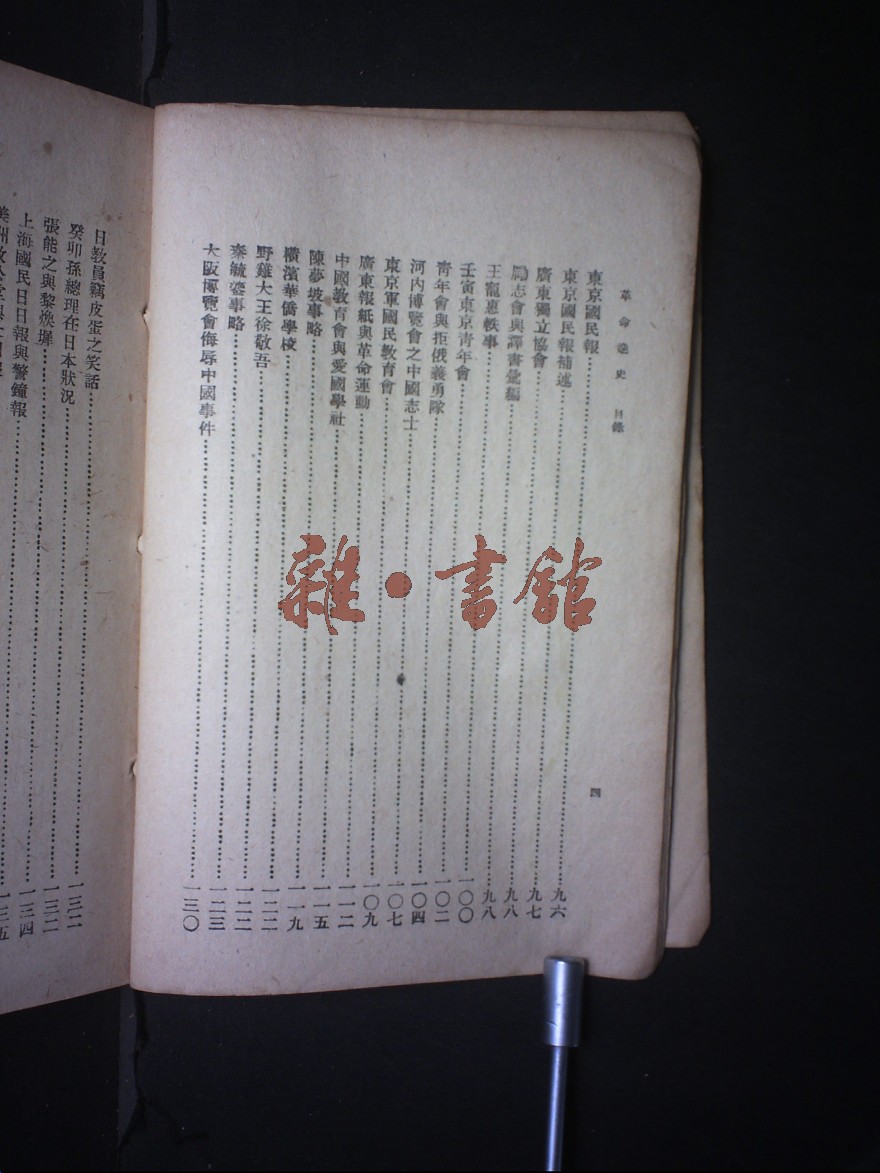 革命逸史 目錄
四
東京國民報……九六
東京國民報補述……九七
廣東獨立協會……九八
勵志會與譯書彙編……九八
王寵惠軼事……一〇〇
壬寅東京青年會……一〇二
靑年會與拒俄義勇隊……一〇四
河內博覽會之中國志士……一〇七
東京軍國民教育會……一〇九
廣東報紙與革命運動……一一二
中國教育會與愛國學社……一一五
陳夢坡事略……一一九
橫濱華僑學校……一二二
野雞大王徐敬吾……一二二
秦毓鎏事略……一二三
大阪博覽會侮辱中國事件……一三〇
日教員竊皮蛋之笑話……一三二
癸卯孫總理在日本狀況……一三二
張能之與黎煥墀……一三四
上海國民日日報與警鐘報……一三五
雜·書館